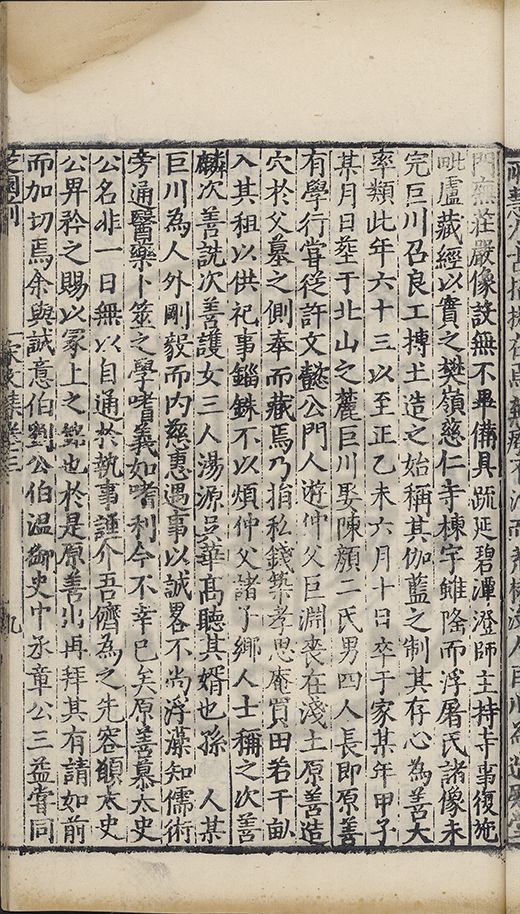 門廡莊嚴像設無不畢備具䟽延碧潭澄師主持寺事復施
毗盧藏經以實之樊嶺慈仁寺棟宇雖隆而浮屠氏諸像未
完巨川召良工摶土造之始稱其伽藍之制其存心為善大
率類此年六十三以至正乙未六月十日卒于家某年甲子
某月日塟于北山之麓巨川娶陳顔二氏男四人長即原善
有學行甞從許文懿公門人遊仲父巨淵喪在淺土原善造
穴於父墓之側奉而藏焉乃捐私錢築孝思庵買田若干畝
入其租以供祀事錙銖不以煩仲父諸子鄉人士稱之次善
麟次善詵次善護女三人湯源吴華髙聽其婿也孫　人某
巨川為人外剛毅而内慈惠遇事以誠畧不尚浮藻知儒術
旁通醫藥卜筮之學嗜義如嗜利今不幸已矣原善慕太史
公名非一日無以自通於執事謹介吾儕為之先容願太史
公畀矜之賜以冢上之銘也於是原善出再拜其有請如前
而加切焉余與誠意伯劉公伯温御史中丞章公三益甞同
九